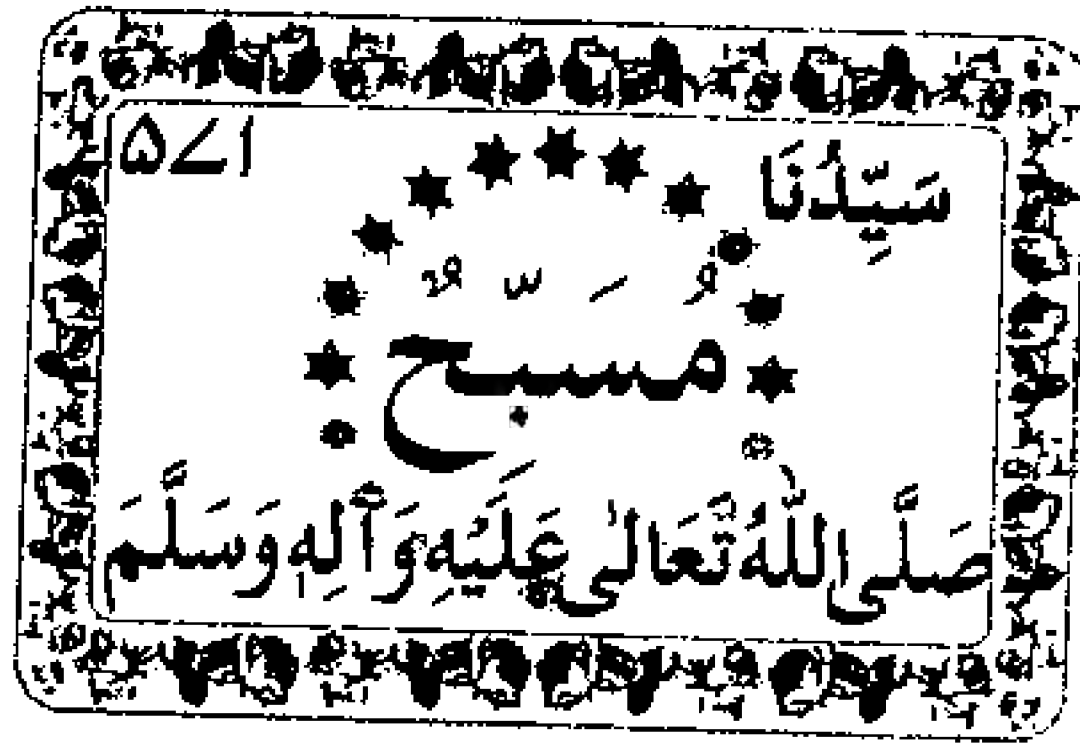 سَيِّدُنَا ۵۷۱
مُسَبِّحٌ
صَلَّى اللّٰهُ تَعَالٰى عَلَيْهِ وَآلِهٖ وَسَلَّمَ